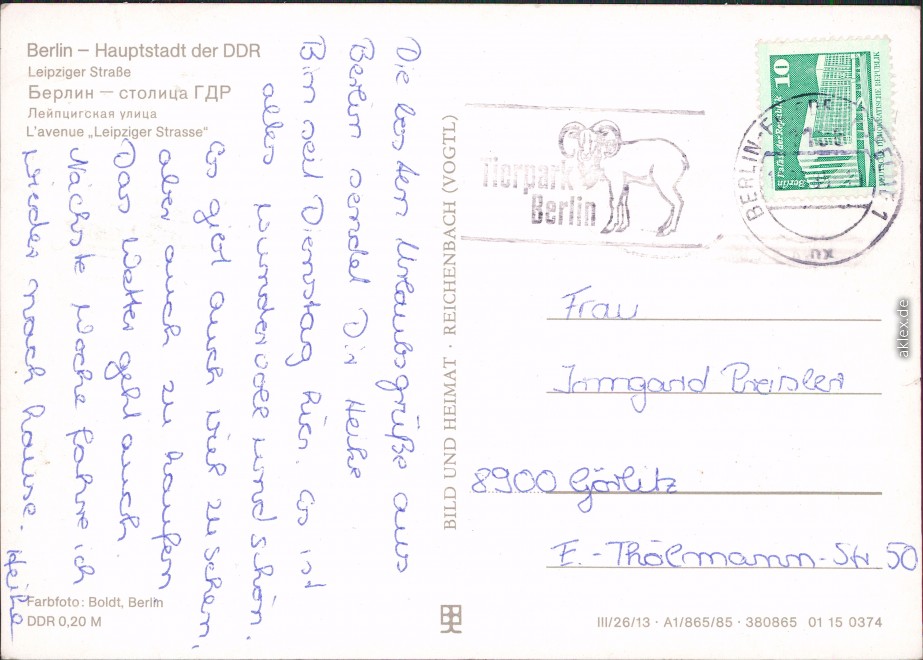 Berlin – Hauptstadt der DDR
Leipziger Straße
Берлин — столица ГДР
Лейпцигская улица
L'avenue „Leipziger Strasse"
Die besten Urlaubsgrüße aus
Berlin sendet Dir Heike
Bin seit Dienstag hier. Es ist
alles wundervoll und schön.
Es giet auch viel zu sehen,
aber auch zu kaufen
Das Wetter geht auch.
Nächste Woche fahre ich
wieder nach hause.
Heike
Farbfoto: Boldt, Berlin
DDR 0,20 M
BILD UND HEIMAT · REICHENBACH (VOGTL)
Tierpark
Berlin
10
Berlin Palast der Republik
BERLIN-
1
Frau
Irmgard Preisler
8900 Görlitz
E.-Thälmann-Str 50
III/26/13 · A1/865/85 · 380865 01 15 0374
aklex.de